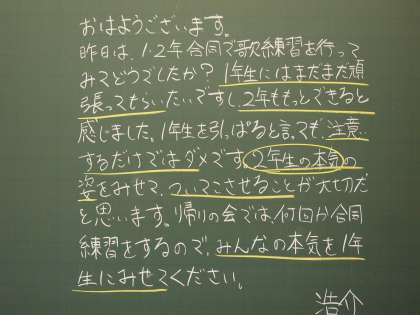 おはようございます。
昨日は、1・2年合同で歌練習を行って
みてどうでしたか？1年生にはまだまだ頑
張ってもらいたいですし、2年ももっとできると
感じました。1年生を引っぱると言っても、注意
するだけではダメです。2年生の本気の
姿をみせて、ついてこさせることが大切だ
と思います。帰りの会では、何回か合同
練習をするので、みんなの本気を1年
生にみせてください。
浩介